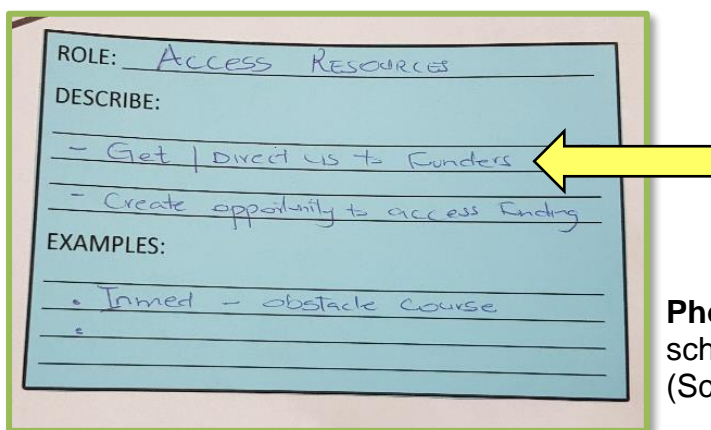 ROLE: ACCESS RESOURCES
DESCRIBE:
- Get / Direct us to Funders
- Create opportunity to access funding
EXAMPLES:
• Inmed - obstacle course
•
Pho
sch
(Sc